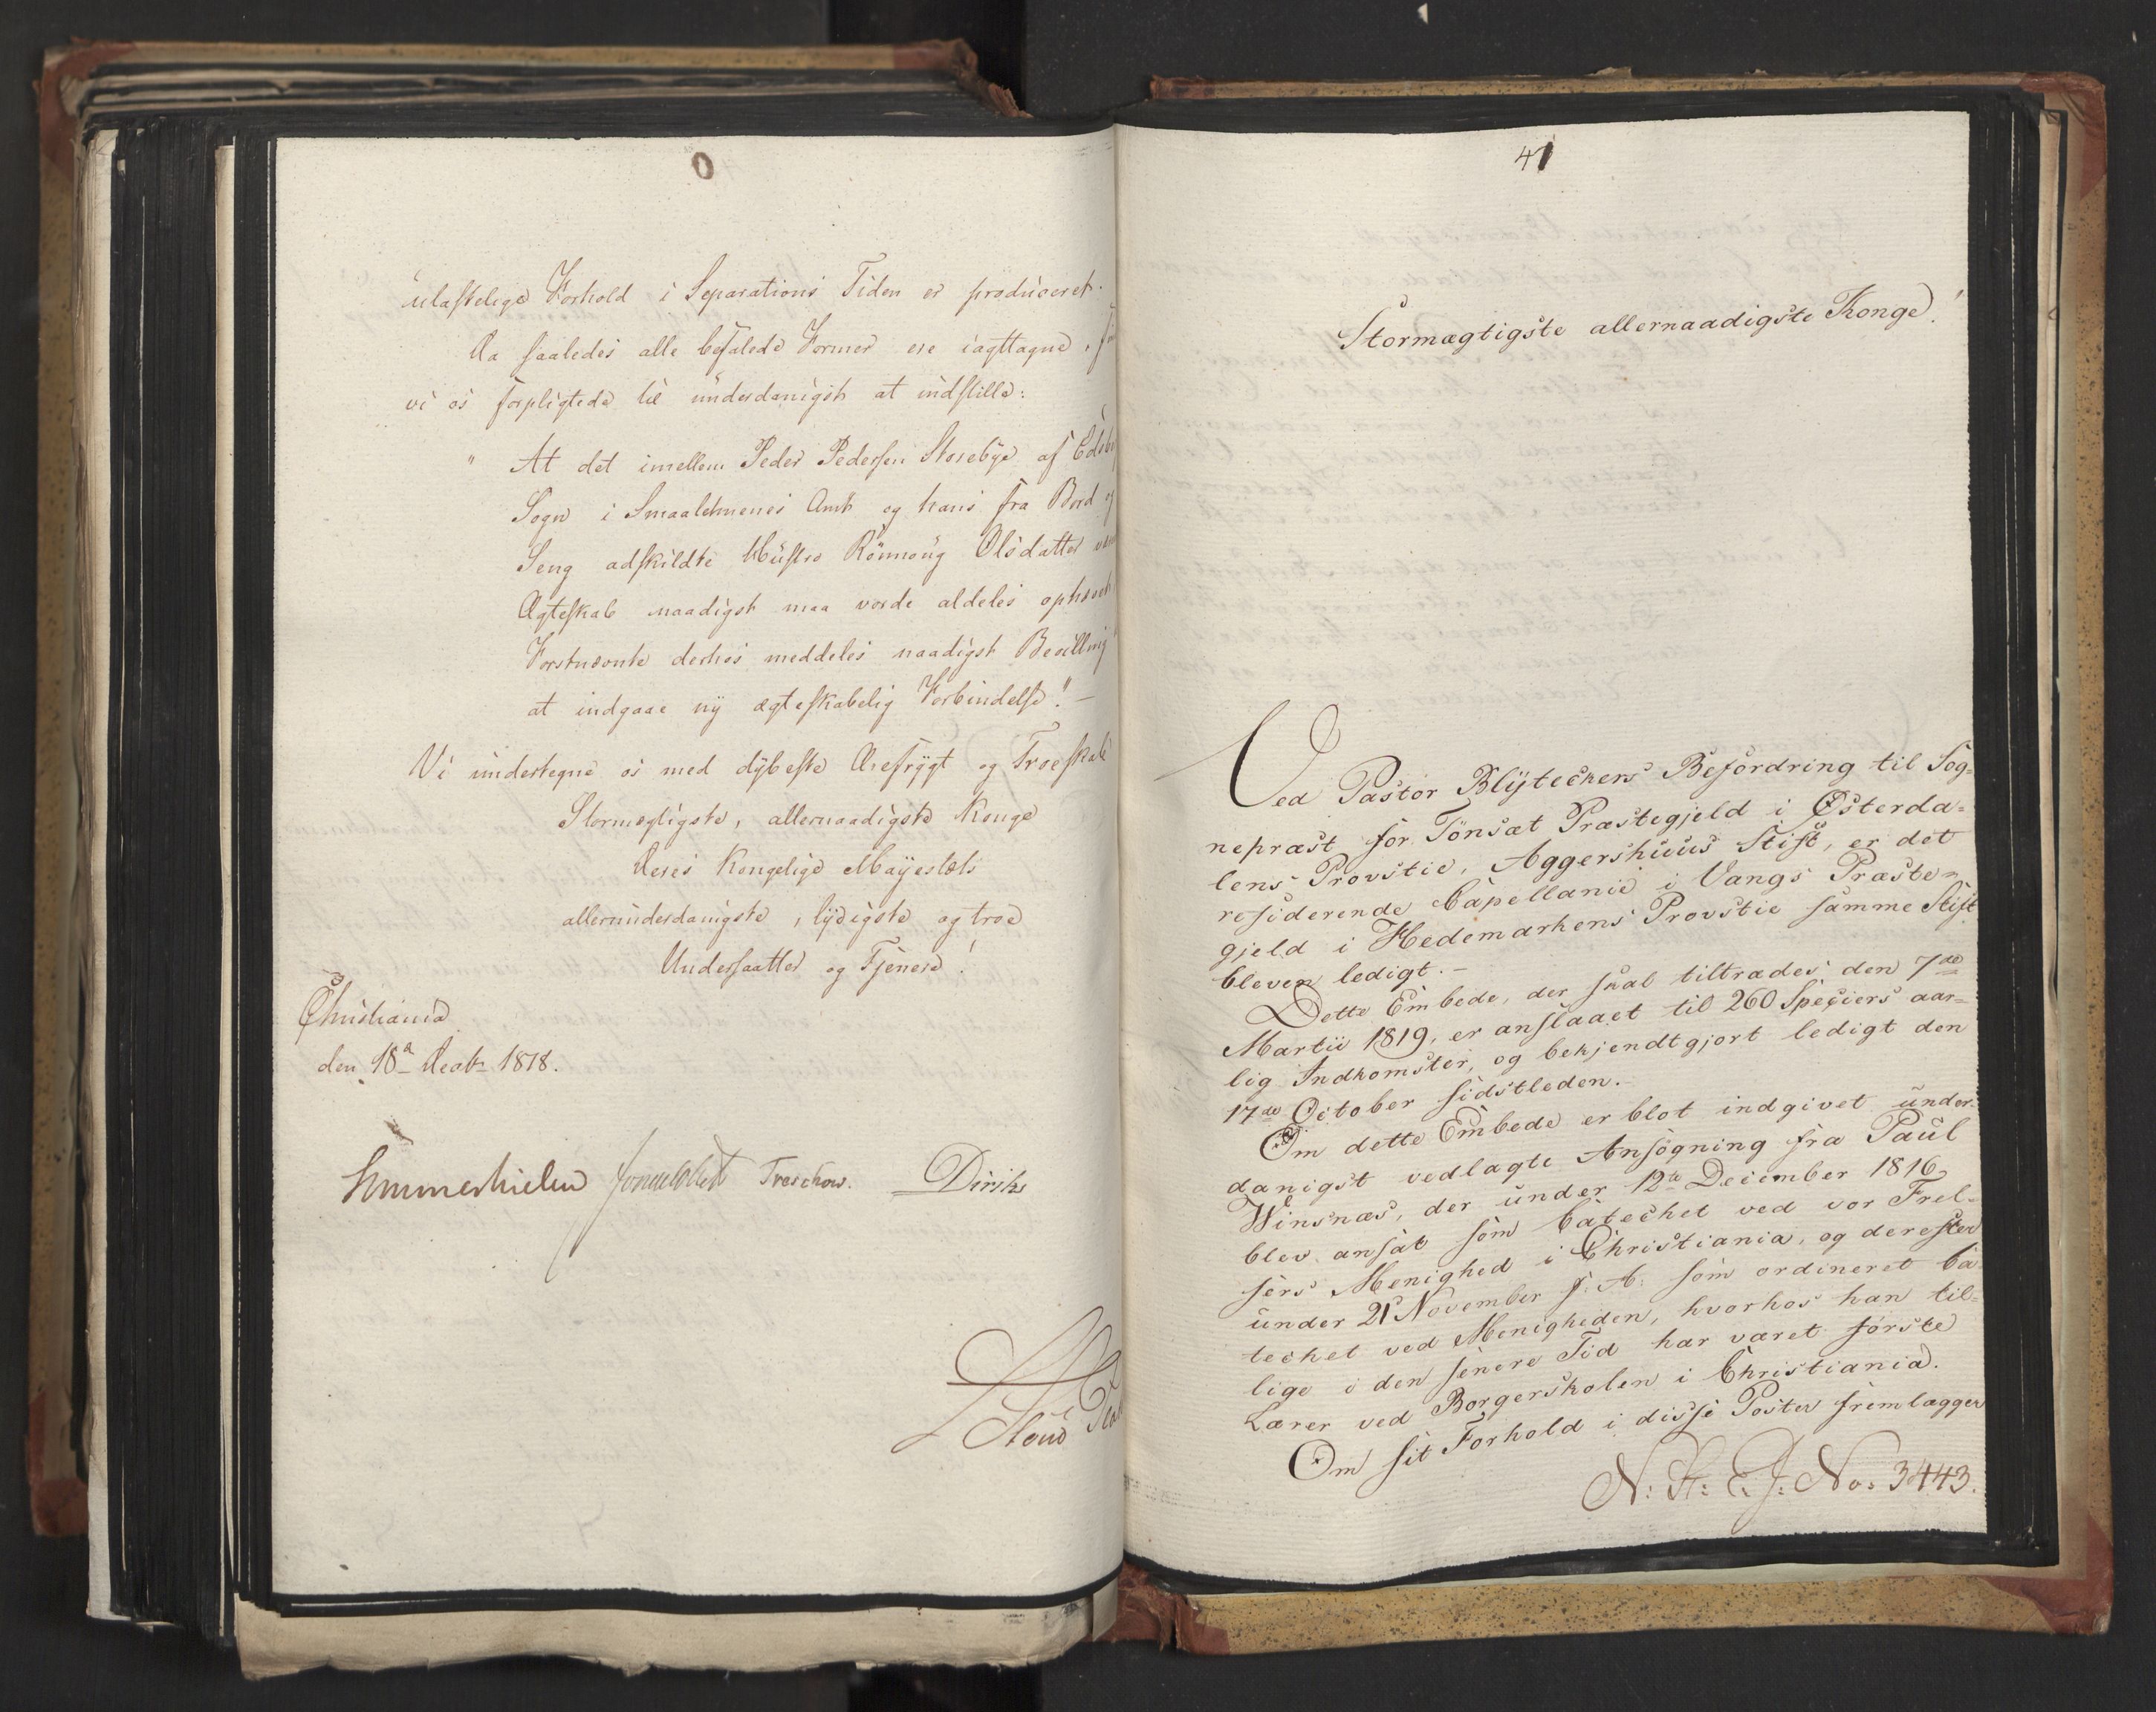 0
ulastelige Forhold i Separations Tiden er produceret.
Da saaledes alle befalede Former ere iagttagne,
vi os forpligtede til underdanigst at indstille:
" At det imellem Peder Pedersen Storebye af
Sogn i Smaalehnenes Amt og hans fra Bord og
Seng adskildte Hustro Rönnoug Olsdatter
Ægteskab naadigst maa vorde aldeles ophævet
Forstnævnte derhos meddeles naadigst Bevilling
at indgaae ny ægteskabelig Forbindelse." –
Vi undertegne os med dybeste Ærefrygt og Troeskab
Stormægtigste, allernaadigste Konge
Deres Kongelige Mayestæts
allerunderdanigste, lydigste og troe
Undersaatter og Tjenere!
Christiania
den 18d Decbr 1818.
Sommerhielm Treschow. Diriks
41
Stormægtigste allernaadigste Konge!
Ved Pastor Blÿteckers Befordring til Sog=
nepræst for Tönsæt Præstegjeld i Østerda=
lens Provstie, Aggershuus Stift, er det
residerende Capellanie i Vangs Præste=
gjeld i Hedemarkens Provstie samme Stift
bleven ledigt. –
Dette Embede, der skal tiltrædes den 7de
Martii 1819, er anslaaet til 260 Speciers aar=
lig Indkomster, og bekjendtgjort ledigt den
17de October sidstleden. –
Om dette Embede er blot indgivet under=
danigst vedlagte Ansögning fra Paul
Winsnæs, der under 12te December 1816
blev ansat som Catechet ved vor Frel=
sers Menighed i Christiania, og derefter
under 21 November f: A: som ordineret Ca=
techet ved Menigheden, hvorhos han til=
lige i den senere Tid har været förste
Lærer ved Borgerskolen i Christiania.
Om sit Forhold i disse Poster fremlægger
N: St: E. J: No: 3443.